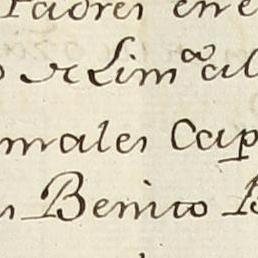 Padres en e
o de Lim.co al
males Cap
s Benito B